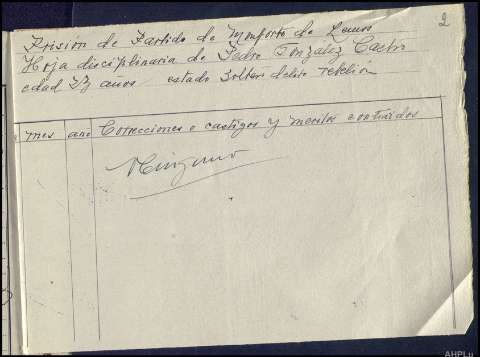 2
Prisión de Partido de Monforte de Lemos
Hoja disciplinaria de Pedro Gonzalez Castro
edad 27 años estado Soltero delito rebelión
mes año Correcciones o castigos y meritos contraidos
Ninguno
AHPLu